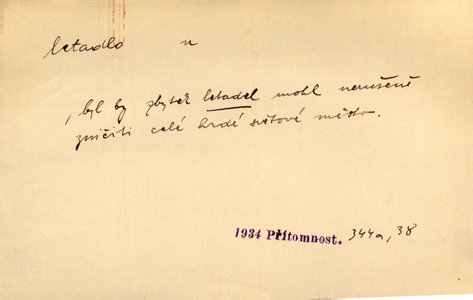 letadlo n
, byl by zbytek letadel mohl nerušeně
zničiti celé hrdé světové město.
1934 Přítomnost. 344a, 38